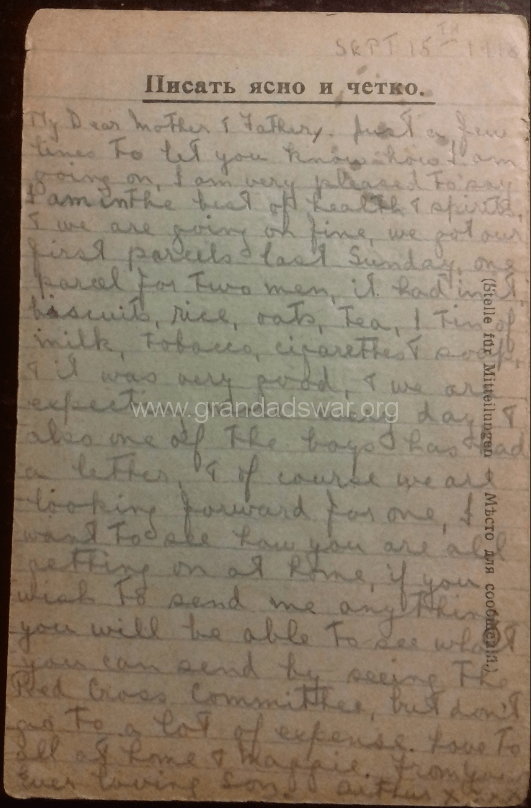 SEPT 15TH 191
Писать ясно и четко.
My Dear Mother & Father, Just a few
lines to let you know how I am
going on, I am very pleased to say
I am in the best of health & spirits,
& we are going on fine, we got our
first parcels last Sunday, one
parcel for two men, it had in it
biscuits, rice, oats, Tea, 1 Tin of
milk, Tobacco, cigarettes & soap,
& it was very good, & we are
day, &
also one of the boys has had
a letter, & of course we are
looking forward for one, I
want to see how you are all
getting on at home, if you
wish to send me anything
you will be able to see what
you can send by seeing the
Red Cross Committee, but don't
go to a lot of expense. Love to
all at home & Maggie. From your
Ever loving Son Arthur x x x
(Stelle für Mitteilungen — Мѣсто для сообщенія.)
www.grandadswar.org